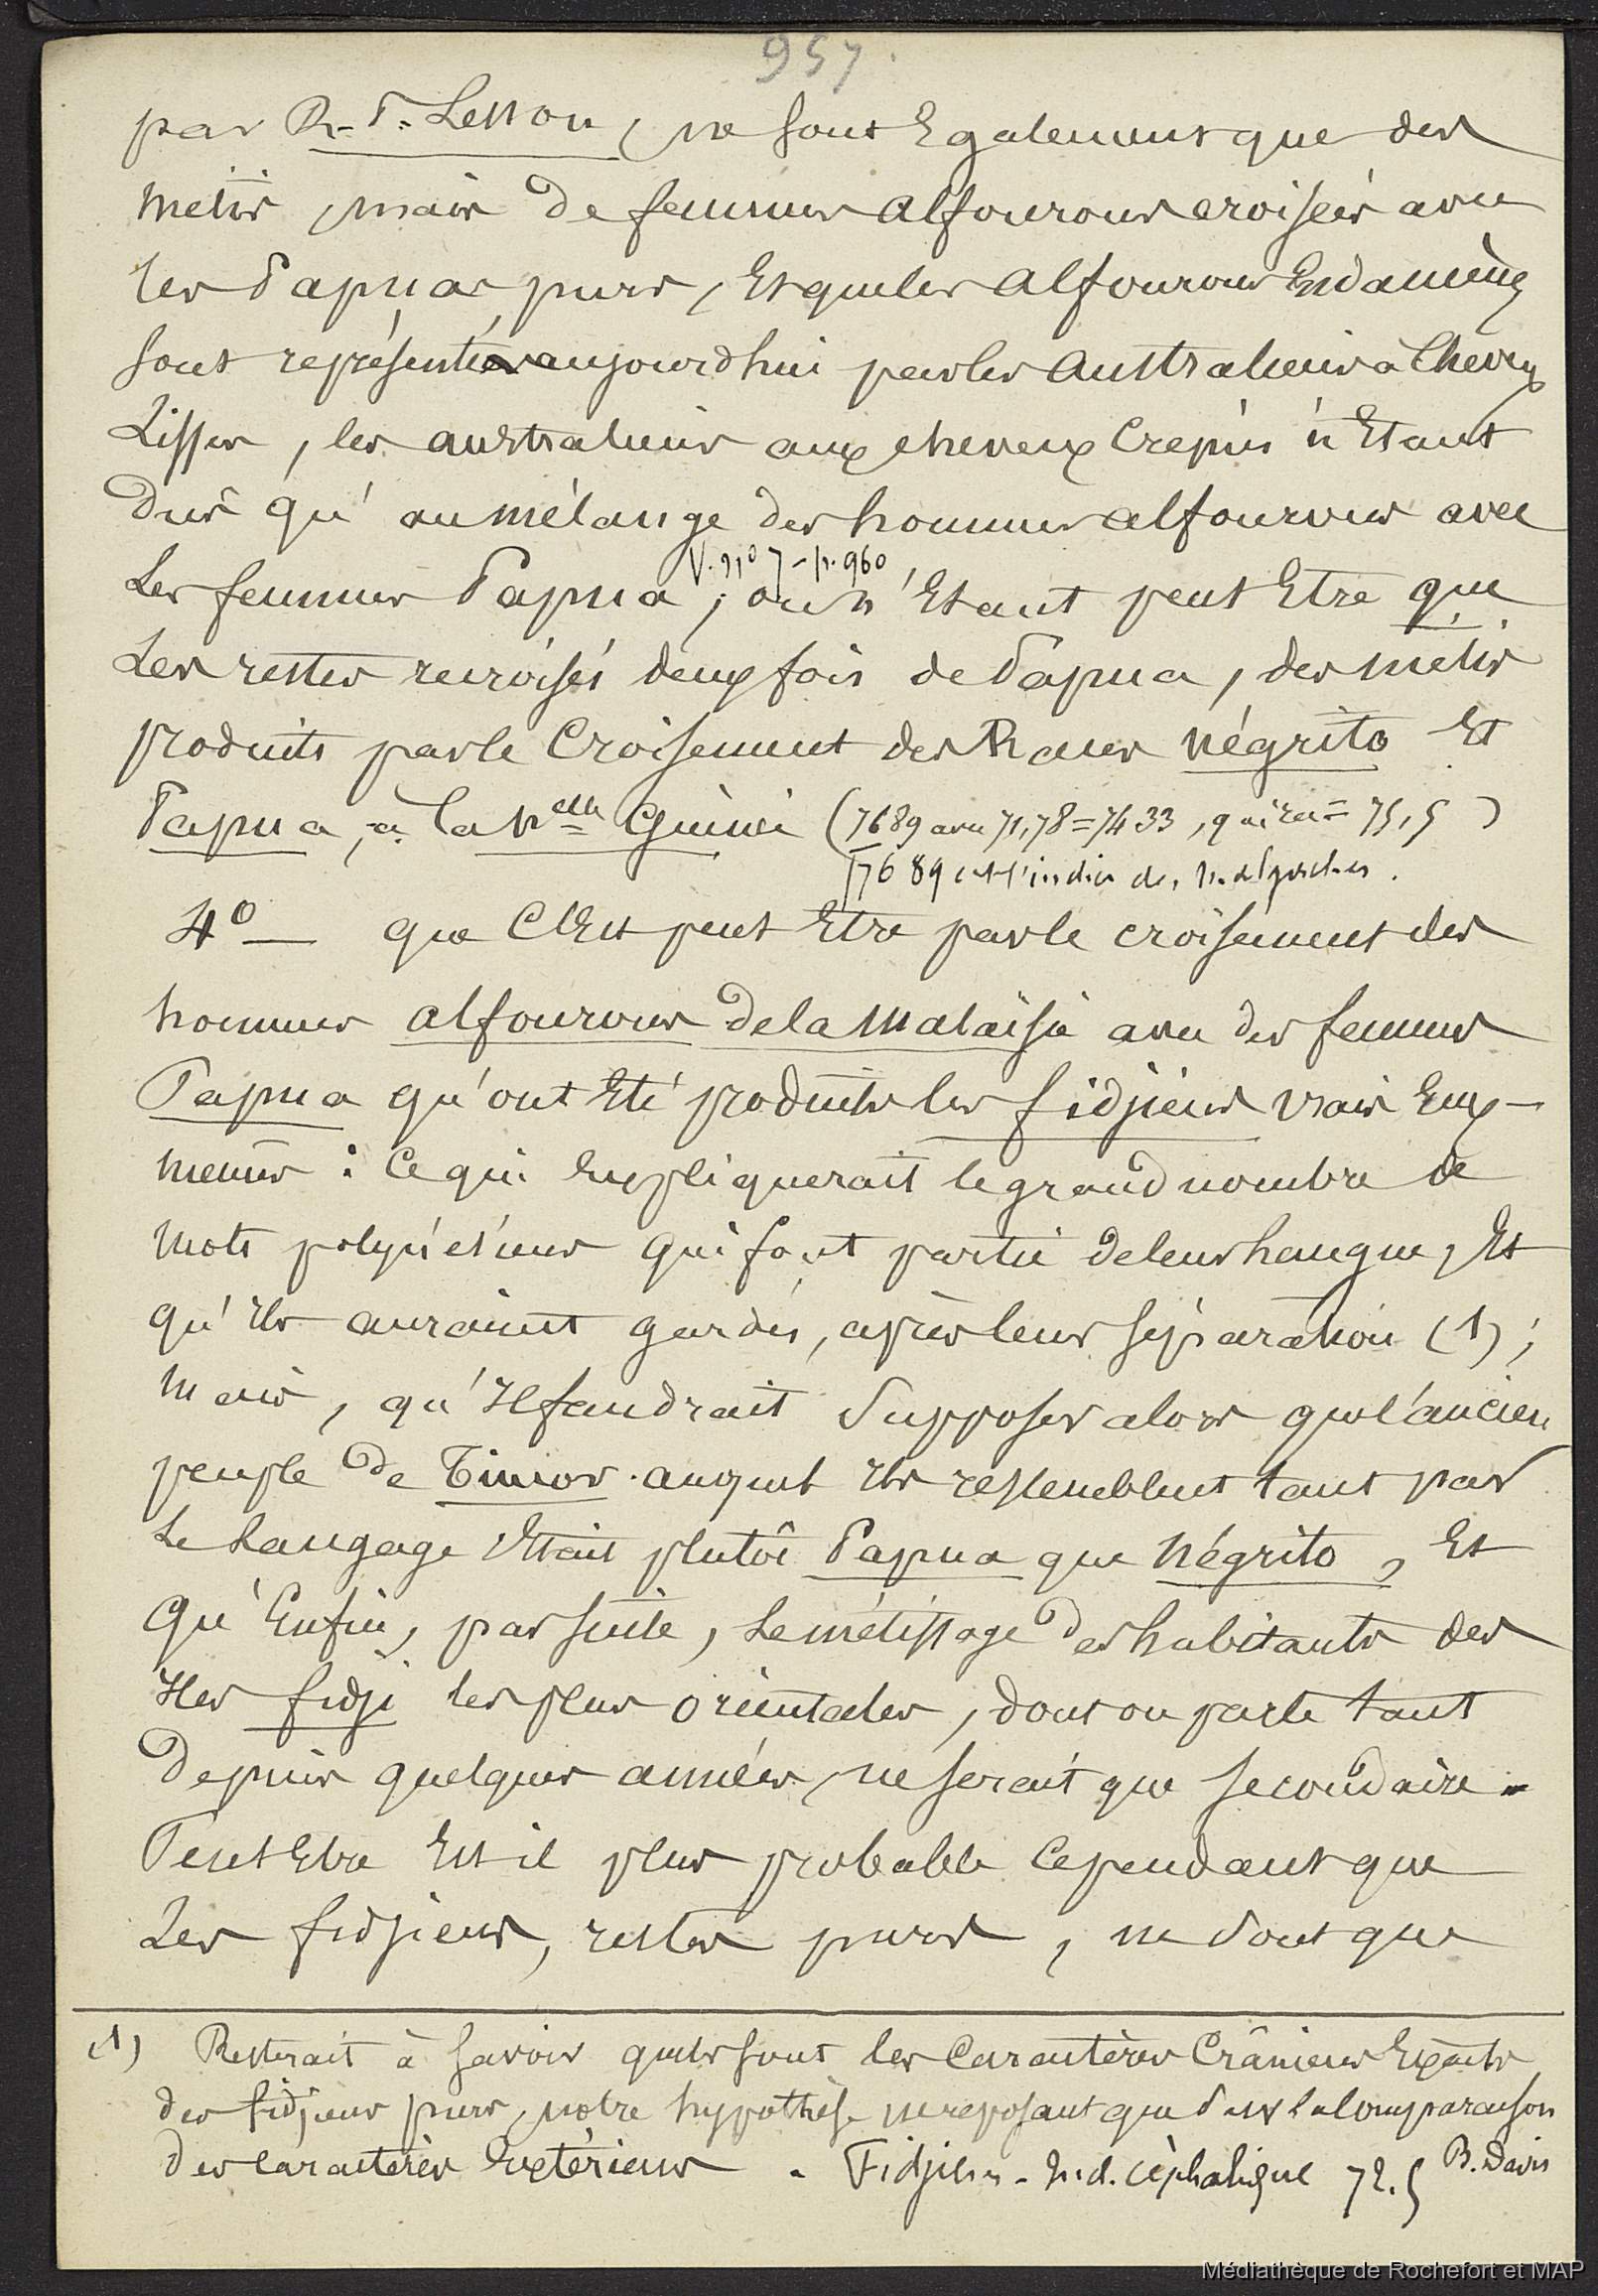 957.
par R.-P. Lesson, ne sont Egalement que des
métis, mais de femmes alfourous croisées avec
les Papua purs, Et que les alfourous Endamènes
sont représentés aujourdhui par les australiens à Cheveux
Lisses, les australiens aux cheveux Crépus n'Etant
dus qu'au mélange des hommes alfourous avec
V. n° 7 - p. 960
Les femmes Papua ; ou n'Etant peut Etre que
Les restes recroisés deux fois de Papua, des métis
produits par le Croisement des Races négrito Et
Papua, à la Nelle Guinée (7689 avec 71,78 = 7433, = 75,5)
7689 est l'indice des
4° — que C'Est peut Etre par le croisement des
hommes alfourous de la Malaisie avec des femmes
Papua qu'ont Eté produits les fidjiens vrais Eux-
memes : Ce qui Expliquerait le grand nombre de
Mots polynésiens qui font partie de leur Langue, Et
qu'Ils auraient gardés, après leur séparation (1) ;
Mais, qu'Il faudrait Supposer alors que l'ancien
peuple de Timor auquel Ils ressemblent tant par
Le Langage Etait plutôt Papua que Négrito, Et
Qu'Enfin, par suite, Le métissage des habitants des
Iles fidji les plus orientales, dont on parle tant
Depuis quelques années, ne serait que secondaire -
Peut Etre Est il plus probable Cependant que
Les fidjiens, restés purs, ne Sont que
(1) Resterait à savoir quels sont les Caractères Crâniens Exacts
des fidjiens purs, notre hypothèse ne reposant que Sur la Comparaison
des caractères Extérieurs - Fidjiens - Ind. céphalique 72.5 B. Davis
Médiathèque de Rochefort et MAP